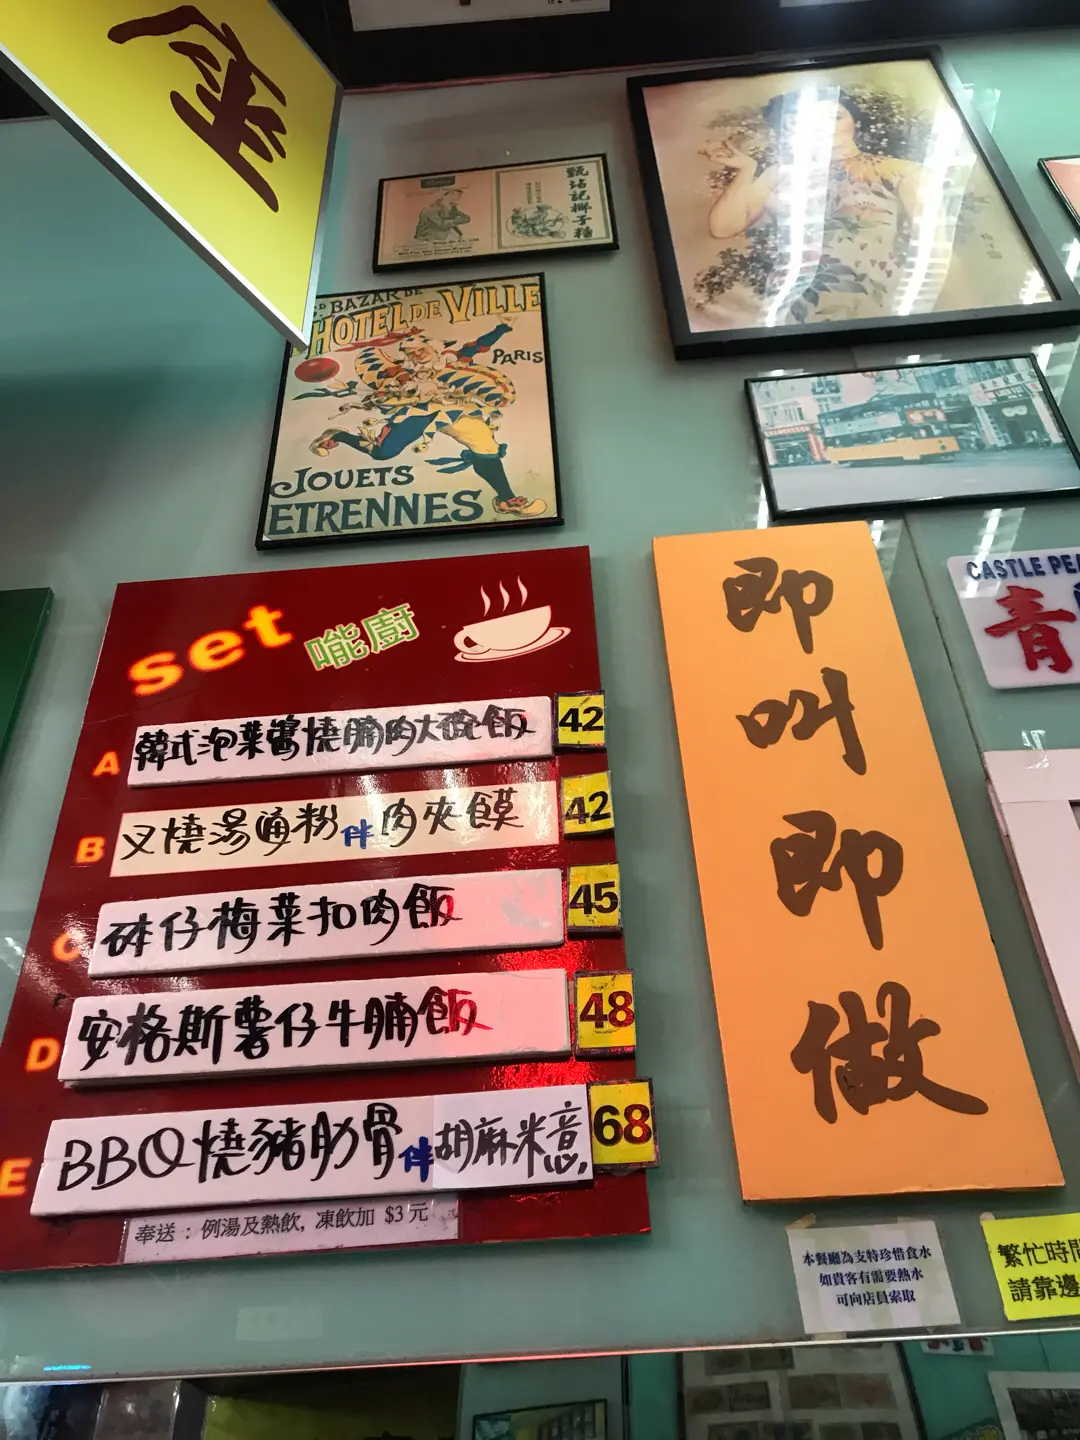 金
甄沾記椰子糖
BAZAR DE
HOTEL DE VILLE
PARIS
JOUETS
ETRENNES
set 嚨廚
A 韓式泡菜醬燒腩肉大碗飯 42
B 叉燒湯通粉伴肉夾饃 42
C 砵仔梅菜扣肉飯 45
D 安格斯薯仔牛腩飯 48
E BBQ燒豬肋骨伴胡麻米意 68
奉送：例湯及熱飲, 凍飲加 $3元
即叫即做
CASTLE PEA
青
本餐廳為支特珍惜食水
如貴客有需要熱水
可向店員索取
繁忙時間
請靠邊